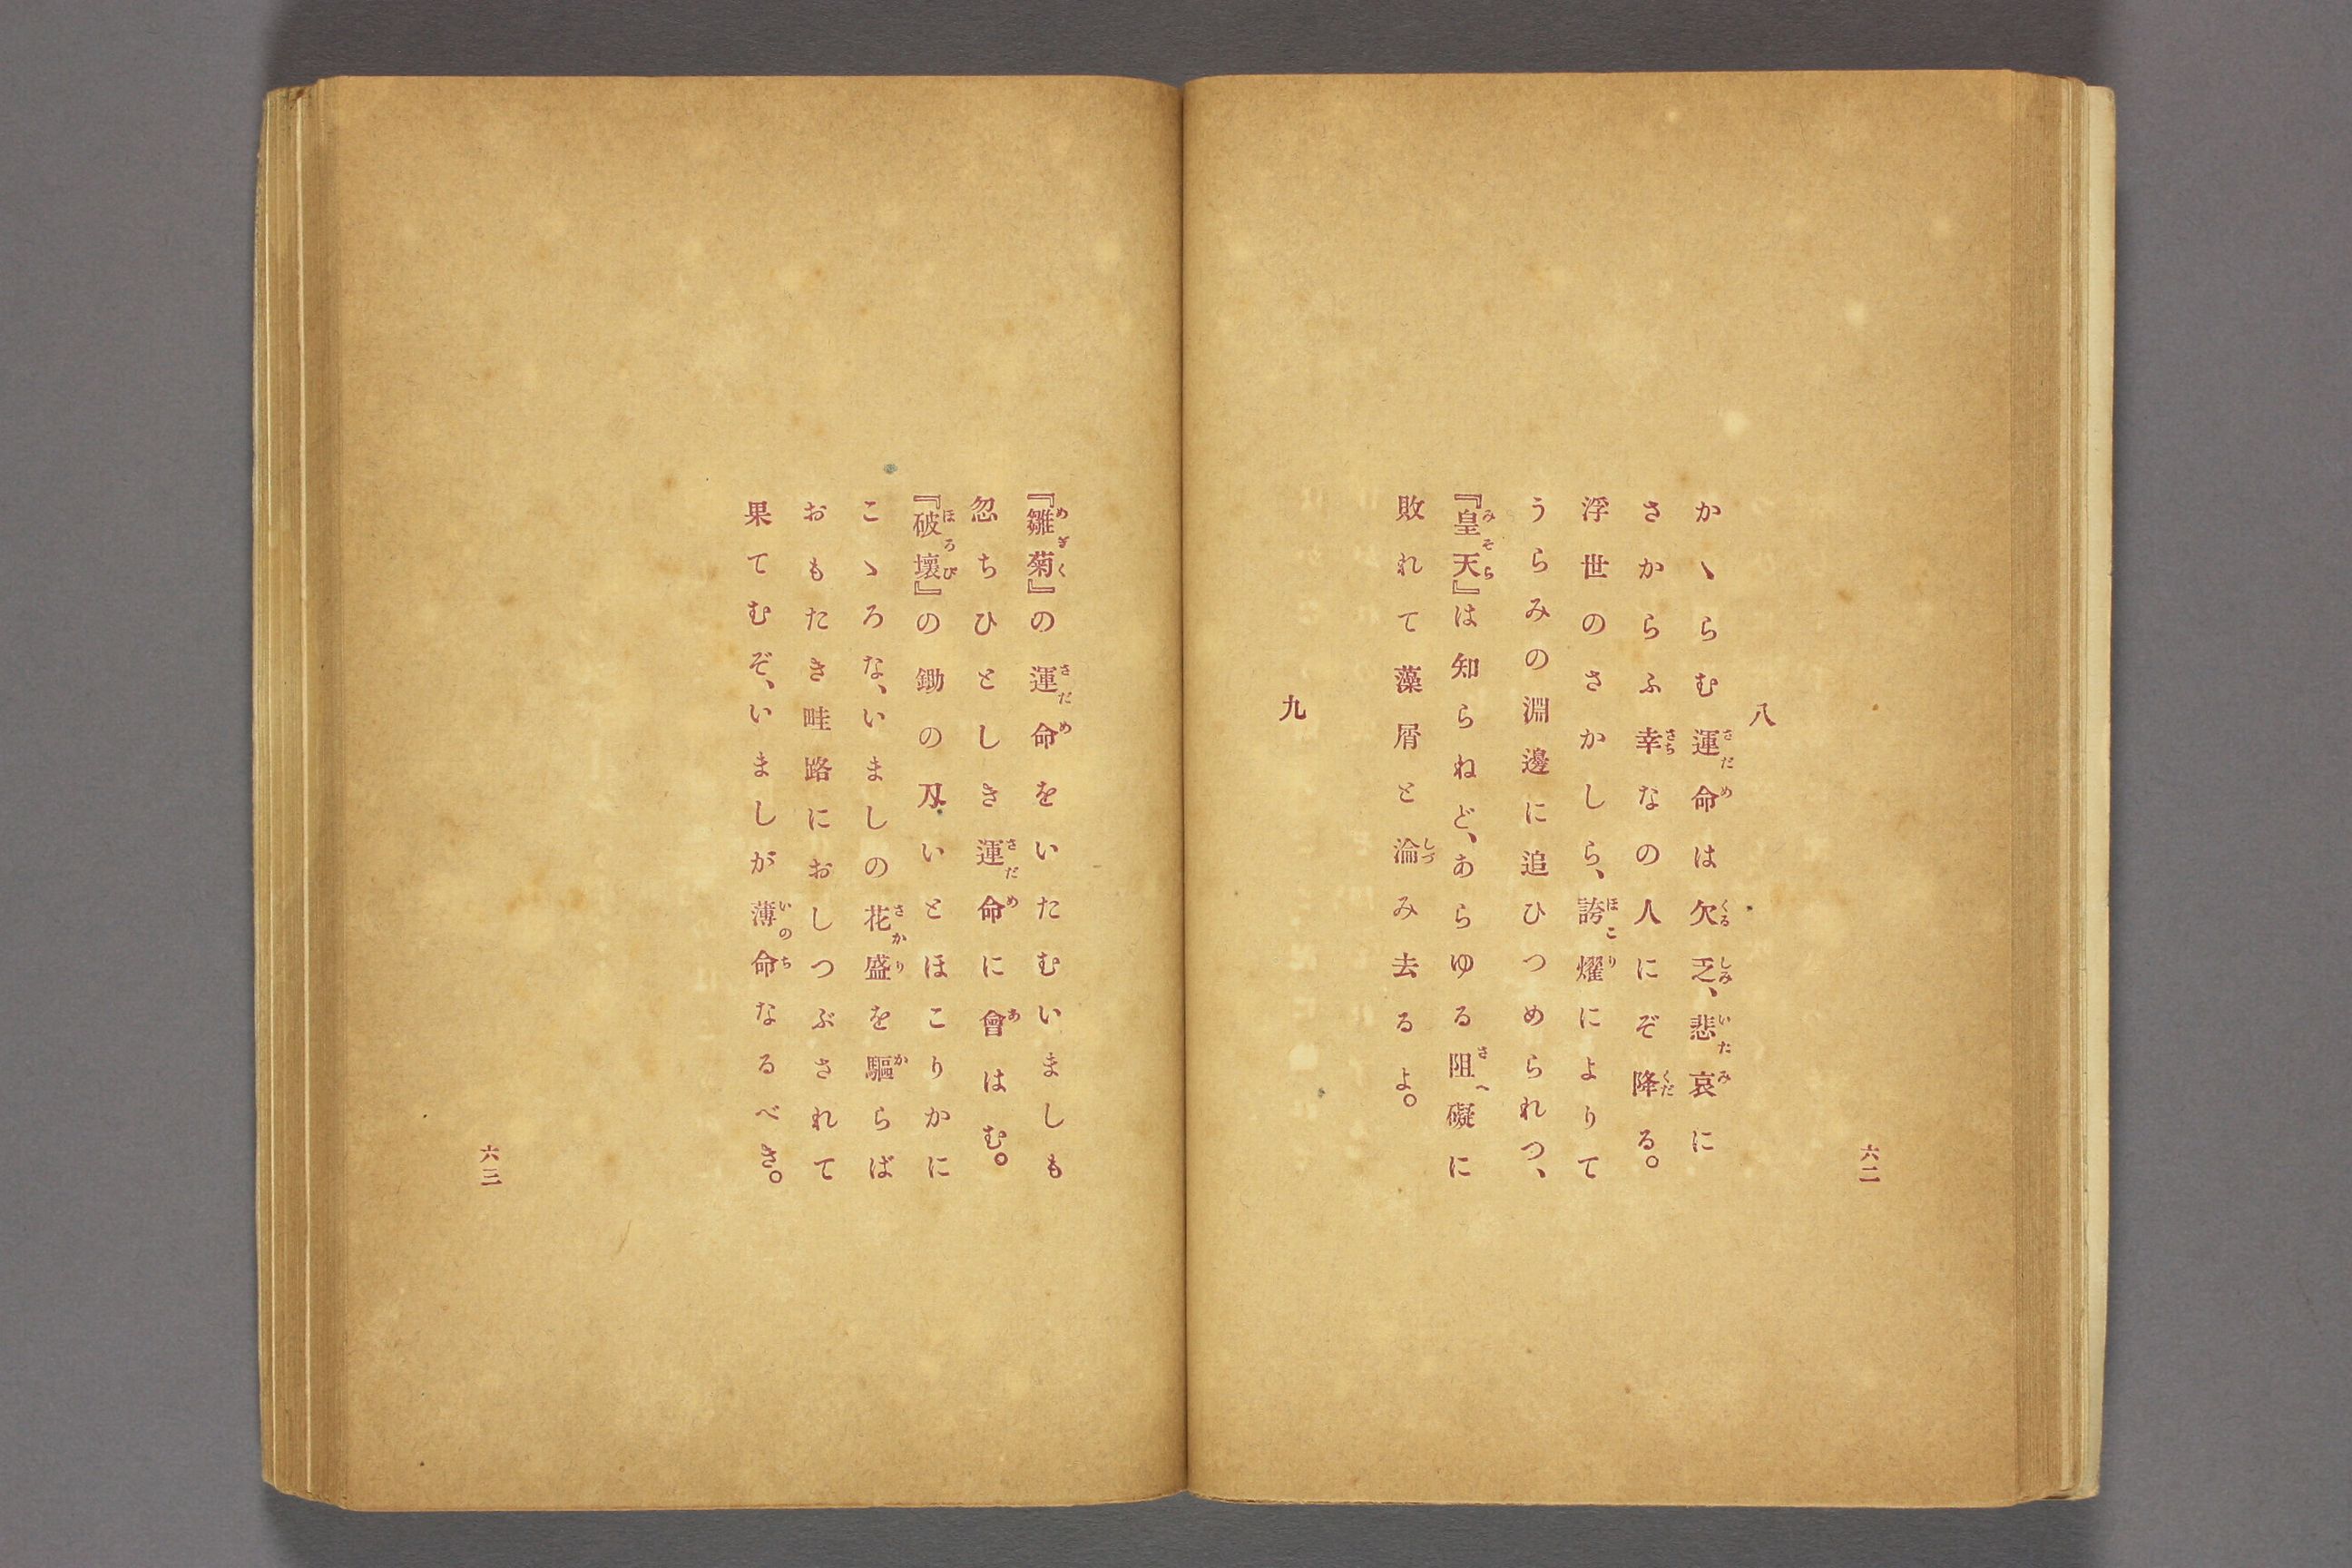 六二
八
かゝらむ運命は欠乏、悲哀に
さからふ幸なの人にぞ降る。
浮世のさかしら、誇燿によりて
うらみの淵邊に追ひつめられつ、
『皇天』は知らねど、あらゆる阻礙に
敗れて藻屑と淪み去るよ。
九
『雛菊』の運命をいたむいましも
忽ちひとしき運命に會はむ。
『破壞』の鋤の刄いとほこりかに
こゝろな、いましの花盛を驅らば
おもたき畦路におしつぶされて
果てむぞ、いましが薄命なるべき。
六三